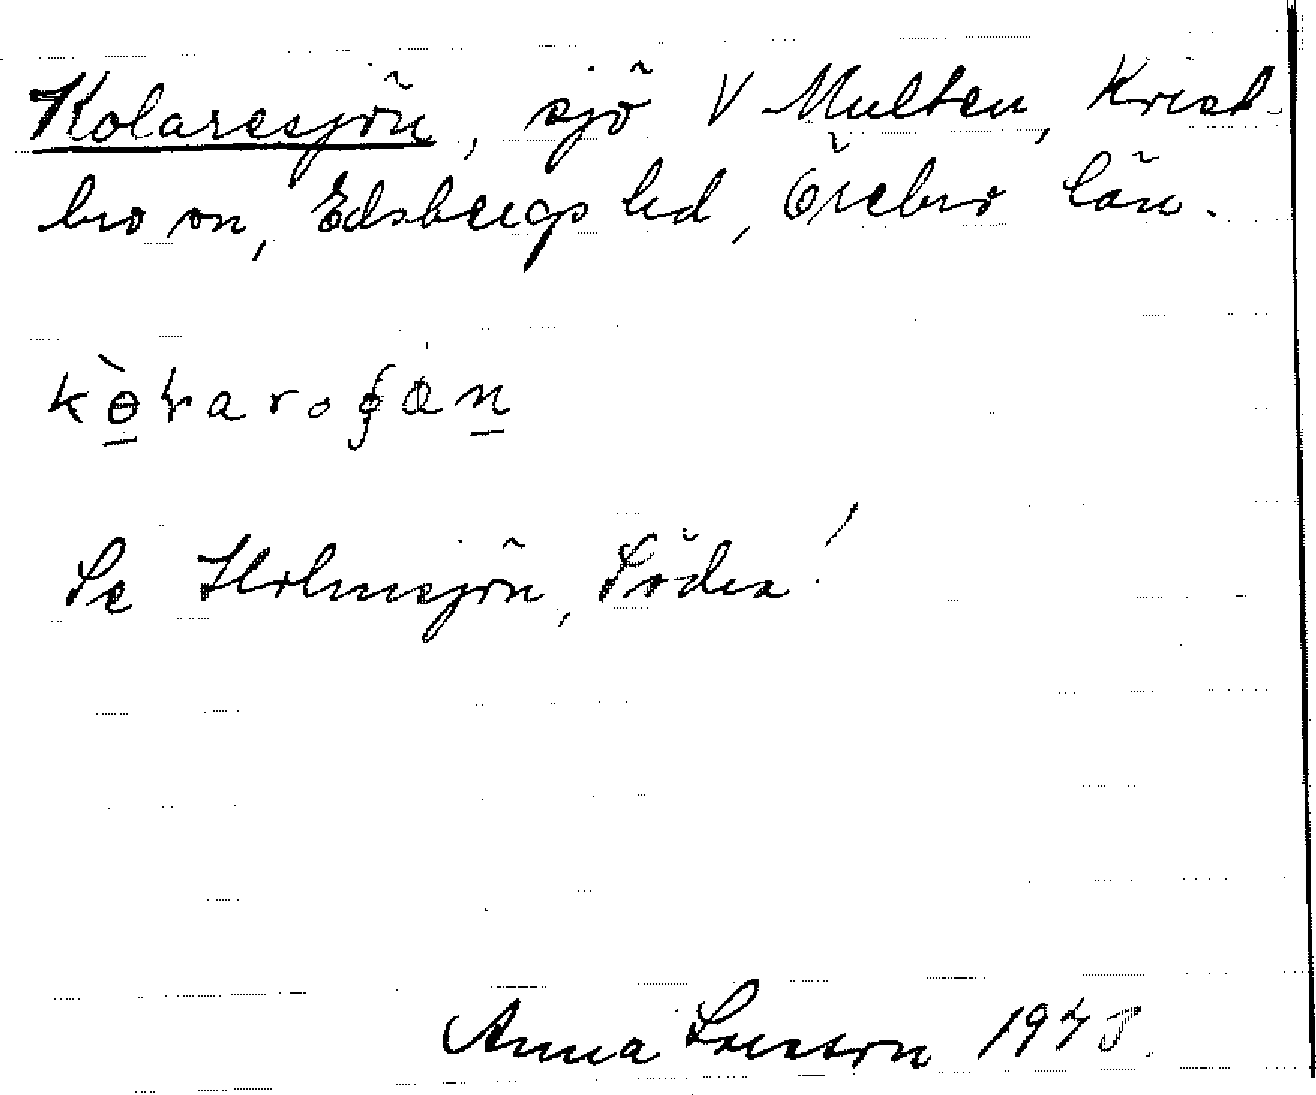 Kolaresjön, sjö V Multen, Krist-
bro on, Edsbergs hd, Örebro län.
Se Holmsjön, Södra!
Anna Larsson